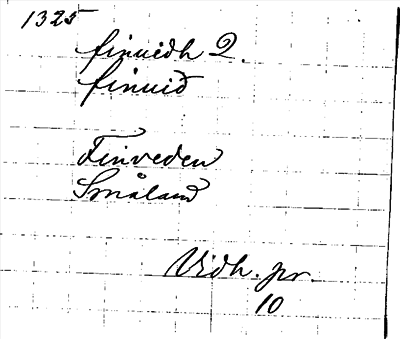 1325
finuidh 2.
finuið
Finveden
Småland
Vidh. pr.
10